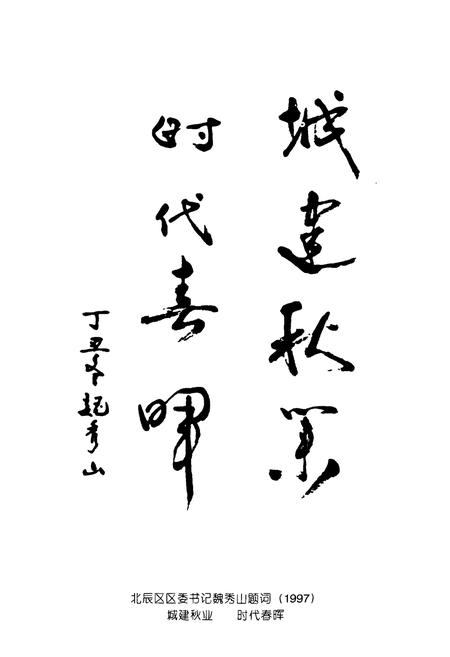 城建秋业
时代春晖
丁丑冬魏秀山
北辰区区委书记魏秀山题词（1997）
城建秋业 时代春晖